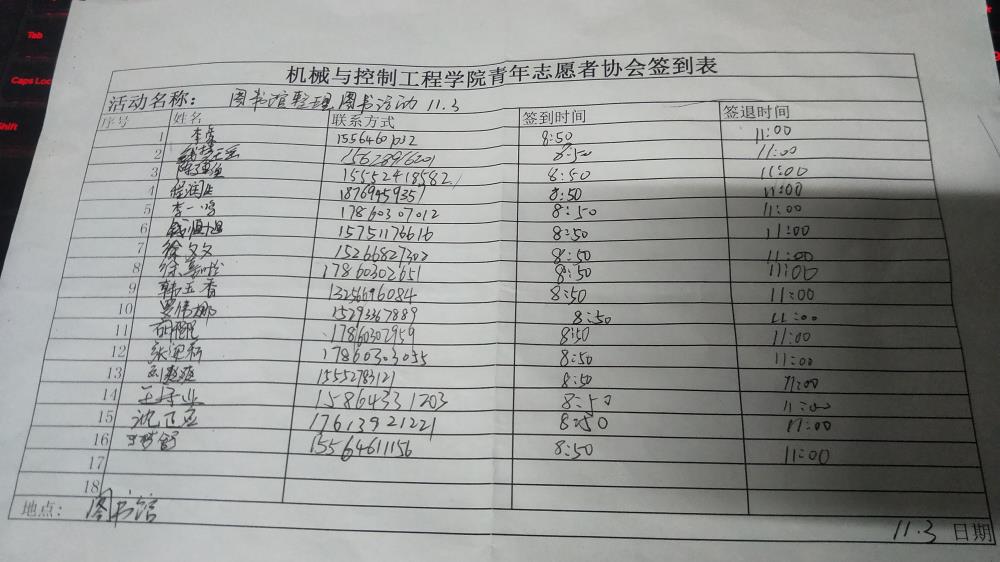 Tab
Caps Loc
Shift
机械与控制工程学院青年志愿者协会签到表
活动名称： 图书馆整理图书活动 11.3
序号 姓名 联系方式 签到时间 签退时间
1 8:50 11:00
2 15628916201 8:50 11:00
3 15552418582 8:50 11:00
4 18769459357 8:50 11:00
5 17860307012 8:50 11:00
6 15751176616 8:50 11:00
7 徐文文 15266827302 8:50 11:00
8 17860302651 8:50 11:00
9 韩五香 13256696084 8:50 11:00
10 15293367889 8:50 11:00
11 17860302959 8:50 11:00
12 17860303055 8:50 11:00
13 15552783121 8:50 11:00
14 15864331203 8:50 11:00
15 17613921221 8:50 11:00
16 15564611156 8:50 11:00
17
18
地点： 图书馆
11.3 日期